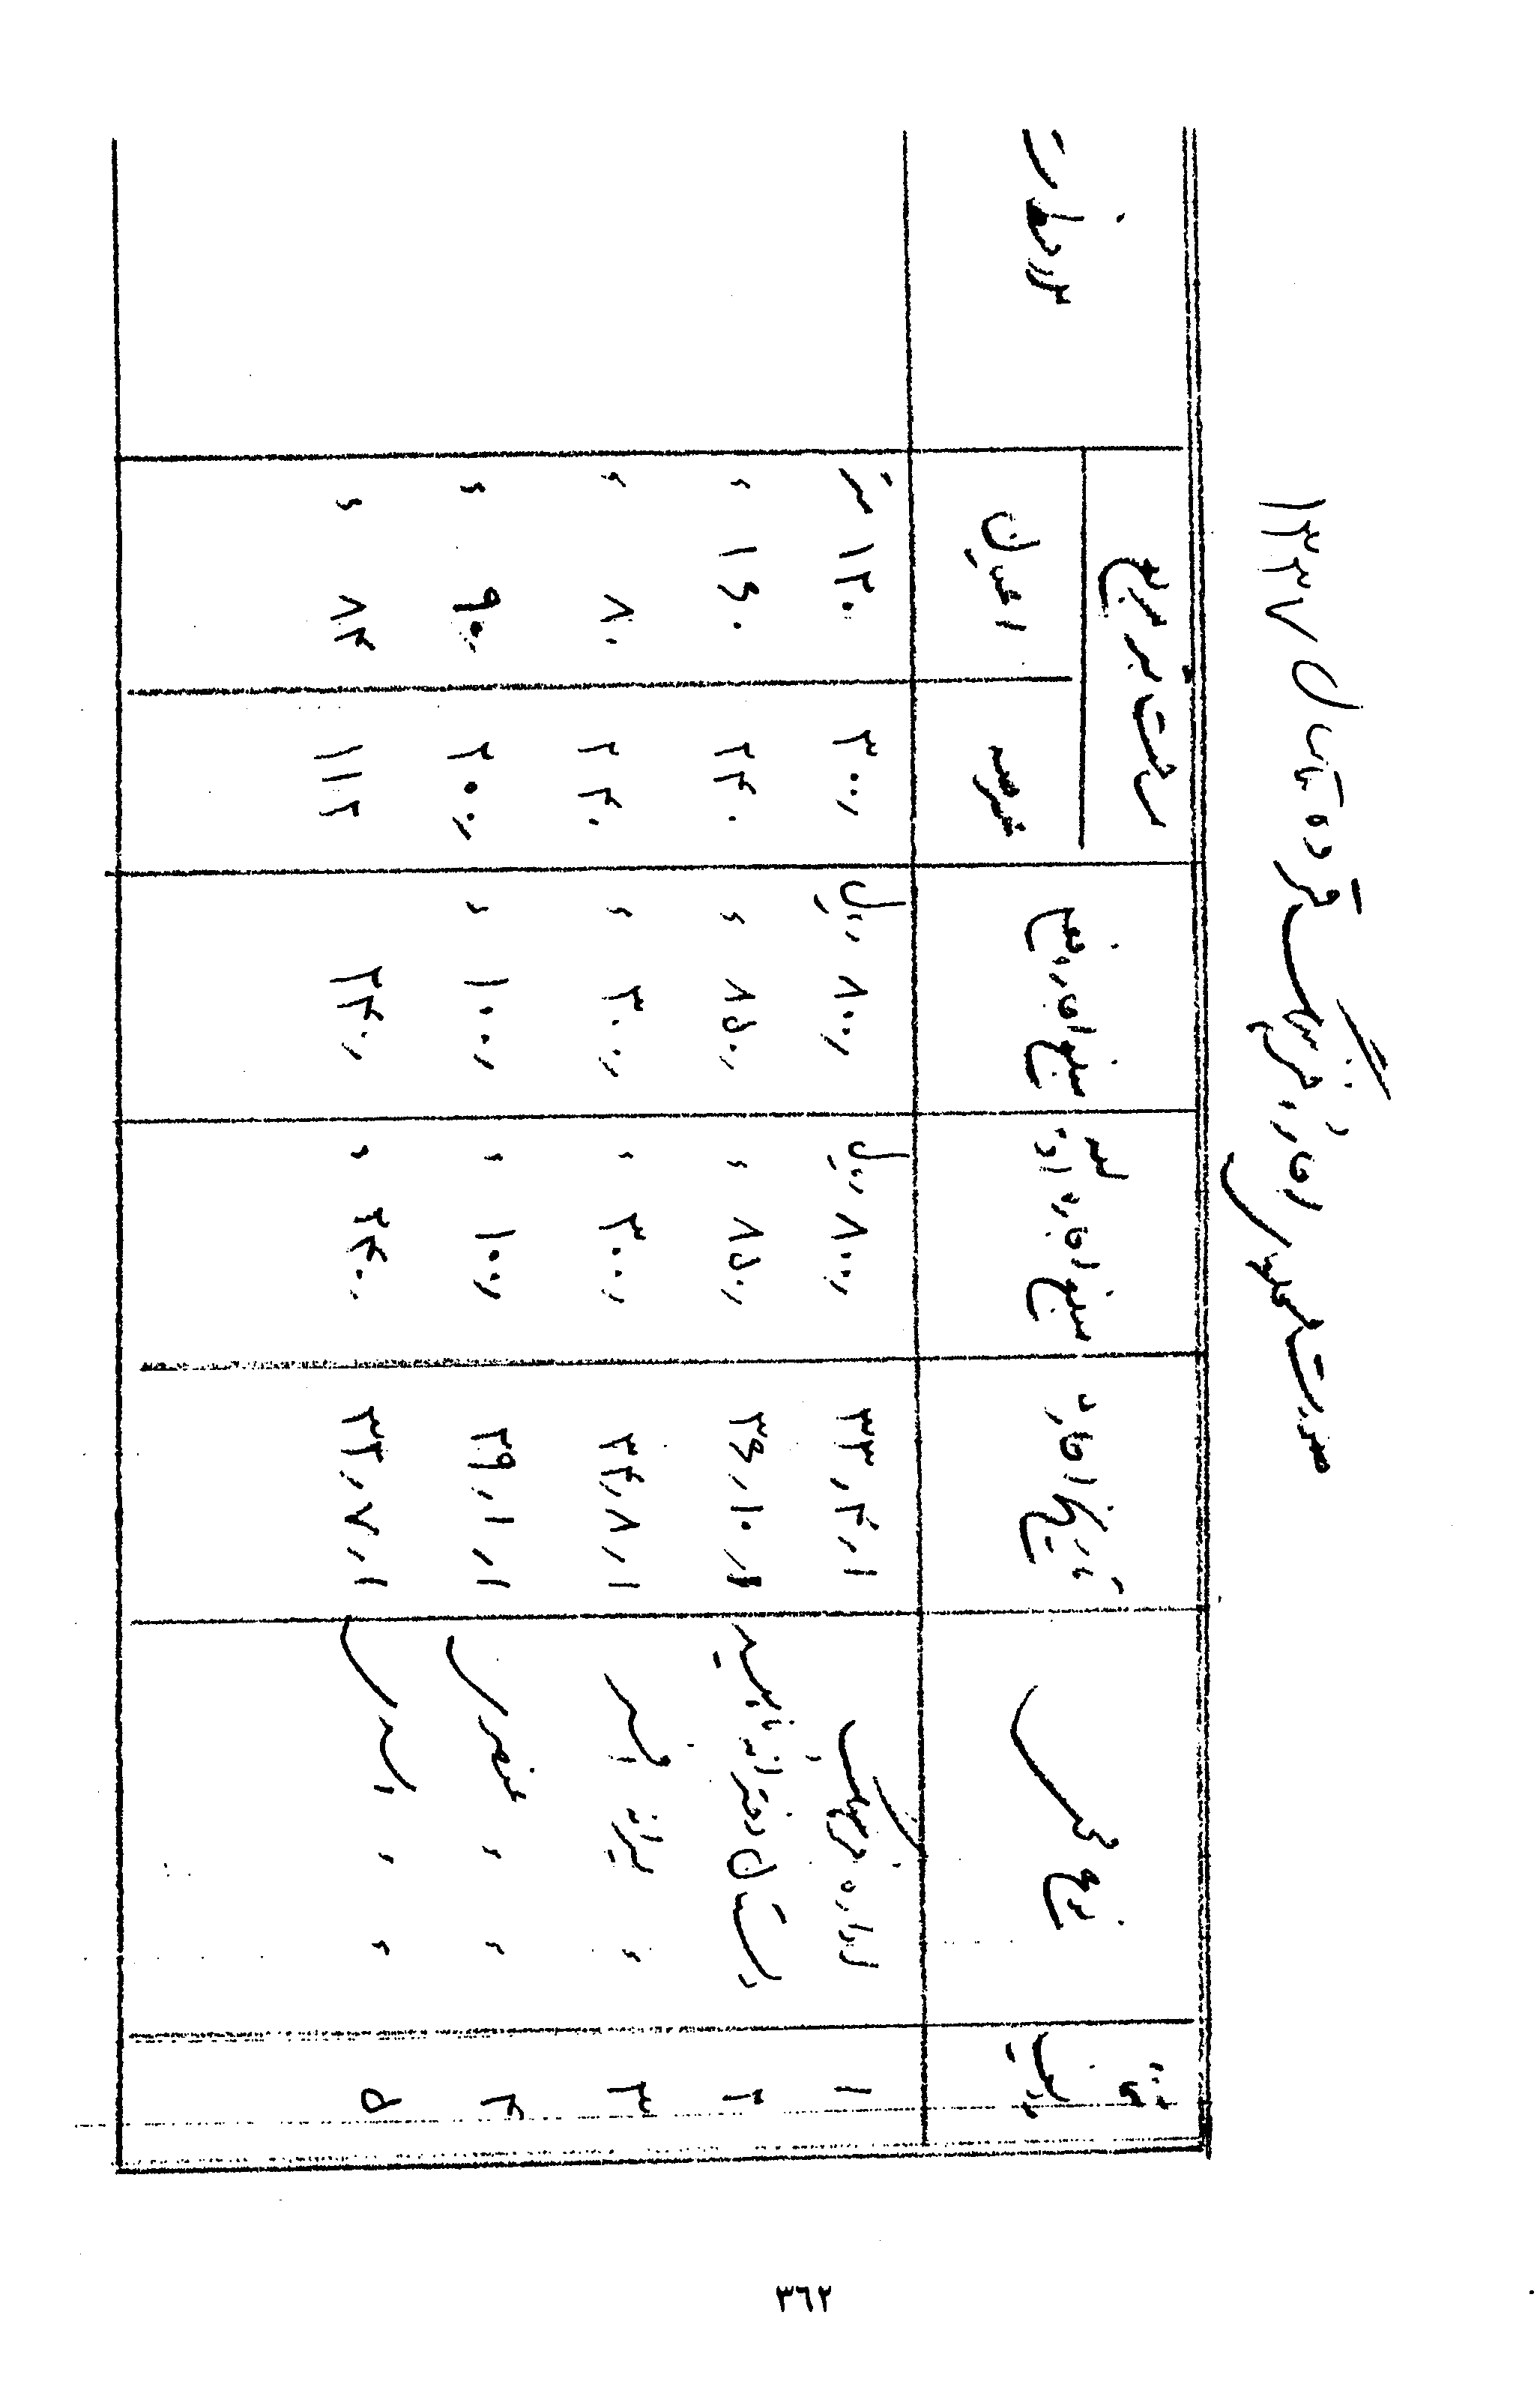 صورت محلهای اجاره فرهنگ آوه تا سال ۱۳۳۷
شماره ترتیب | نوع محل | تاریخ اجاره | مبلغ اجاره اولیه | مبلغ اجاره فعلی | مساحت بمتر مربع | ملاحظات
عرصه | اعیان
۱ | اداره فرهنگ | ۳۳٫۴٫۱ | ۸۰۰٫ ریال | ۸۰۰٫ ریال | ۳۰۰٫ | ۱۲۰ متر
۲ | دبستان دخترانه ناهید | ۳۶٫۱۰٫ | ۸۵۰٫ " | ۸۵۰٫ " | ۲۴۰ | ۱۶۰ "
۳ | " پسرانه | ۳۴٫۸٫۱ | ۳۰۰٫ " | ۳۰۰٫ " | ۲۴۰ | ۸۰ "
۴ | " " عنصری | ۲۹٫۱٫۱ | ۱۰۰٫ " | ۱۰۰٫ " | ۲۰۰٫ | ۹۰ "
۵ | " " | ۳۴٫۷٫۱ | ۲۴۰٫ " | ۲۴۰٫ | ۱۱۲ | ۸۴ "
٣٦٢